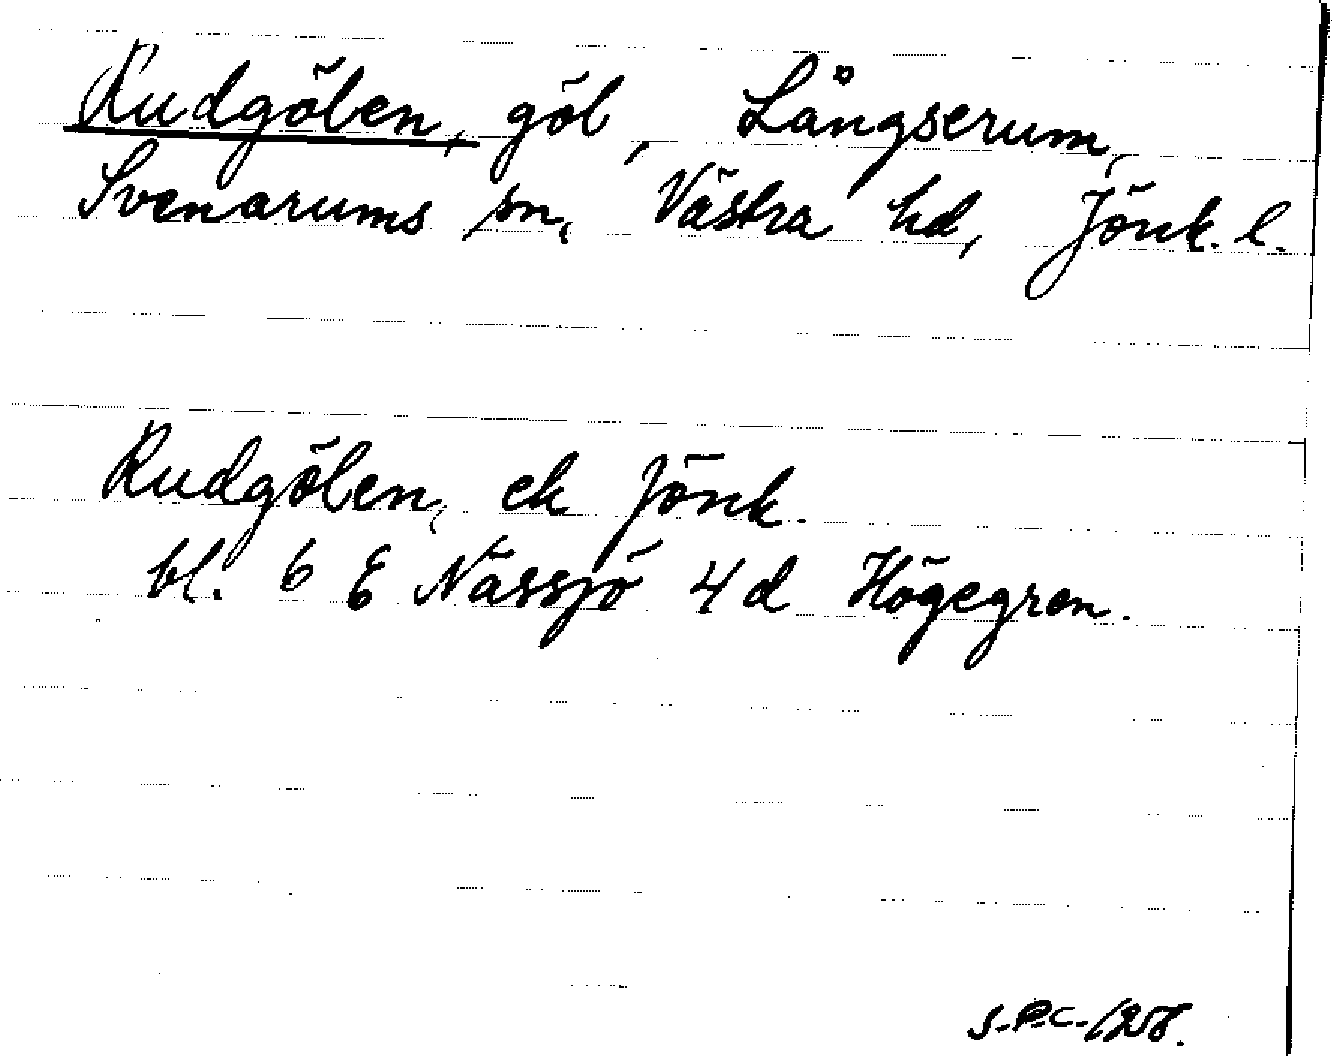 Rudgölen, göl, Långserum,
Svenarums sn, Västra hd, Jönk. l.
Rudgölen, ek Jönk.
bl. 6 E Nässjö 4 d Högegren.
S.P.C.